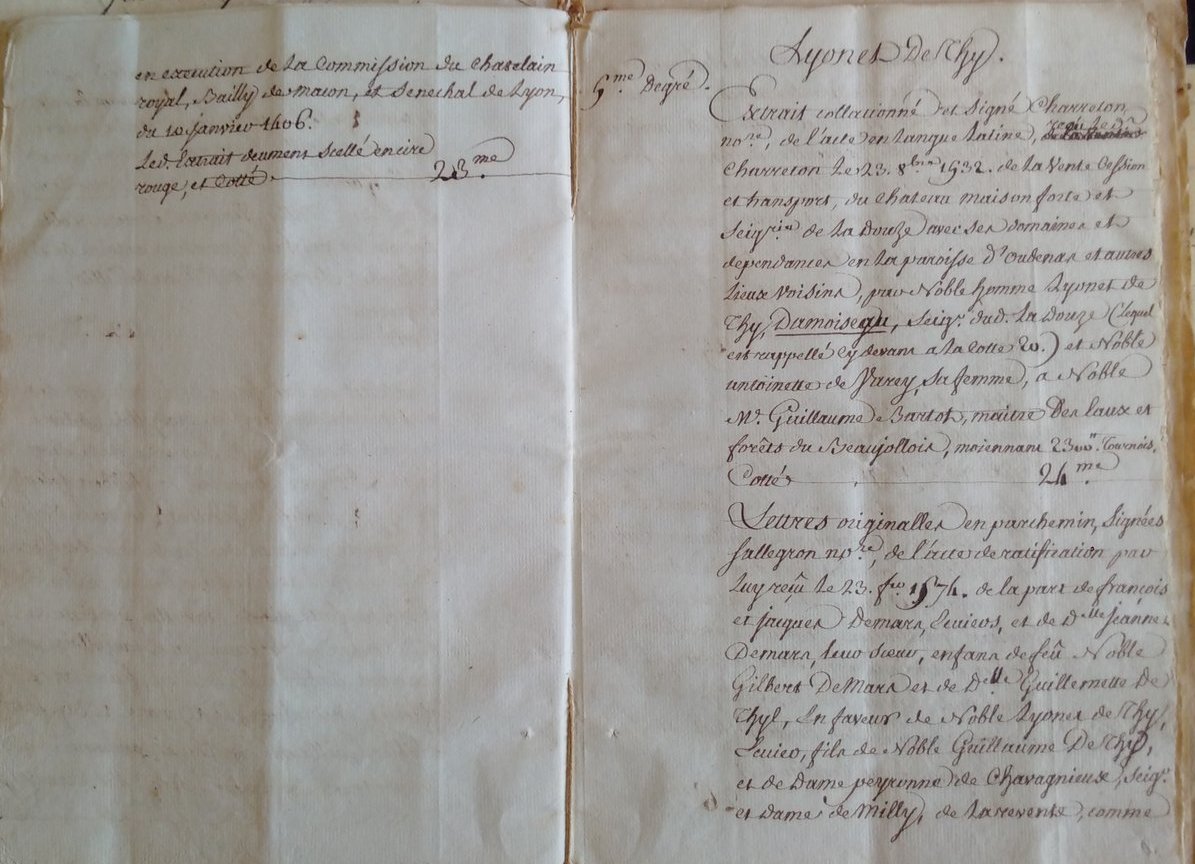 en execution de la Commission du Chatelain
royal, Bailly de macon, et Senechal de Lyon,
du 10 janvier 1406.
Led. Extrait deument Scellé en cire
rouge, et Cotté 23.me
Lyonet De Thy.
9.me Degré.
Extrait collationné et signé Charreton
no.re, de l'acte en langue Latine, reçu led.
Charreton le 23. 8.bre 1532. de la Vente Cession
et transport, du Chateau maison forte et
Seig.rie de la Douze avec ses domaines et
dependances en la paroisse d'Oudenas et autres
Lieux Voisins, par Noble homme Lyonet de
Thy, Damoiseau, Seig.r dud. la Douze (lequel
est rappellé cy devant a la Cotte 20.) et Noble
antoinette de Varey, sa femme, a Noble
M.r Guillaume Bartot, maitre Des Eaux et
forêts du Beaujollois, moiennant 2300.ll Tournois,
Cotté 24.me
Lettres originalles en parchemin, Signées
Sallegron no.re, de l'acte de ratification par
Luy reçû le 23. f.er 1574. de la part de françois
et jacques Demars, Ecuiers, et de D.elle jeanne
Demars, leur soeur, enfans de feû Noble
Gilbert DeMars et de D.elle Guillemette De
Thyl, En faveur de Noble Lyonet de Thyl,
Ecuier, fils de Noble Guillaume De Thy,
et de Dame peyronne de Chavagnieux, Seig.r
et Dame de Milly, de la revente, comme